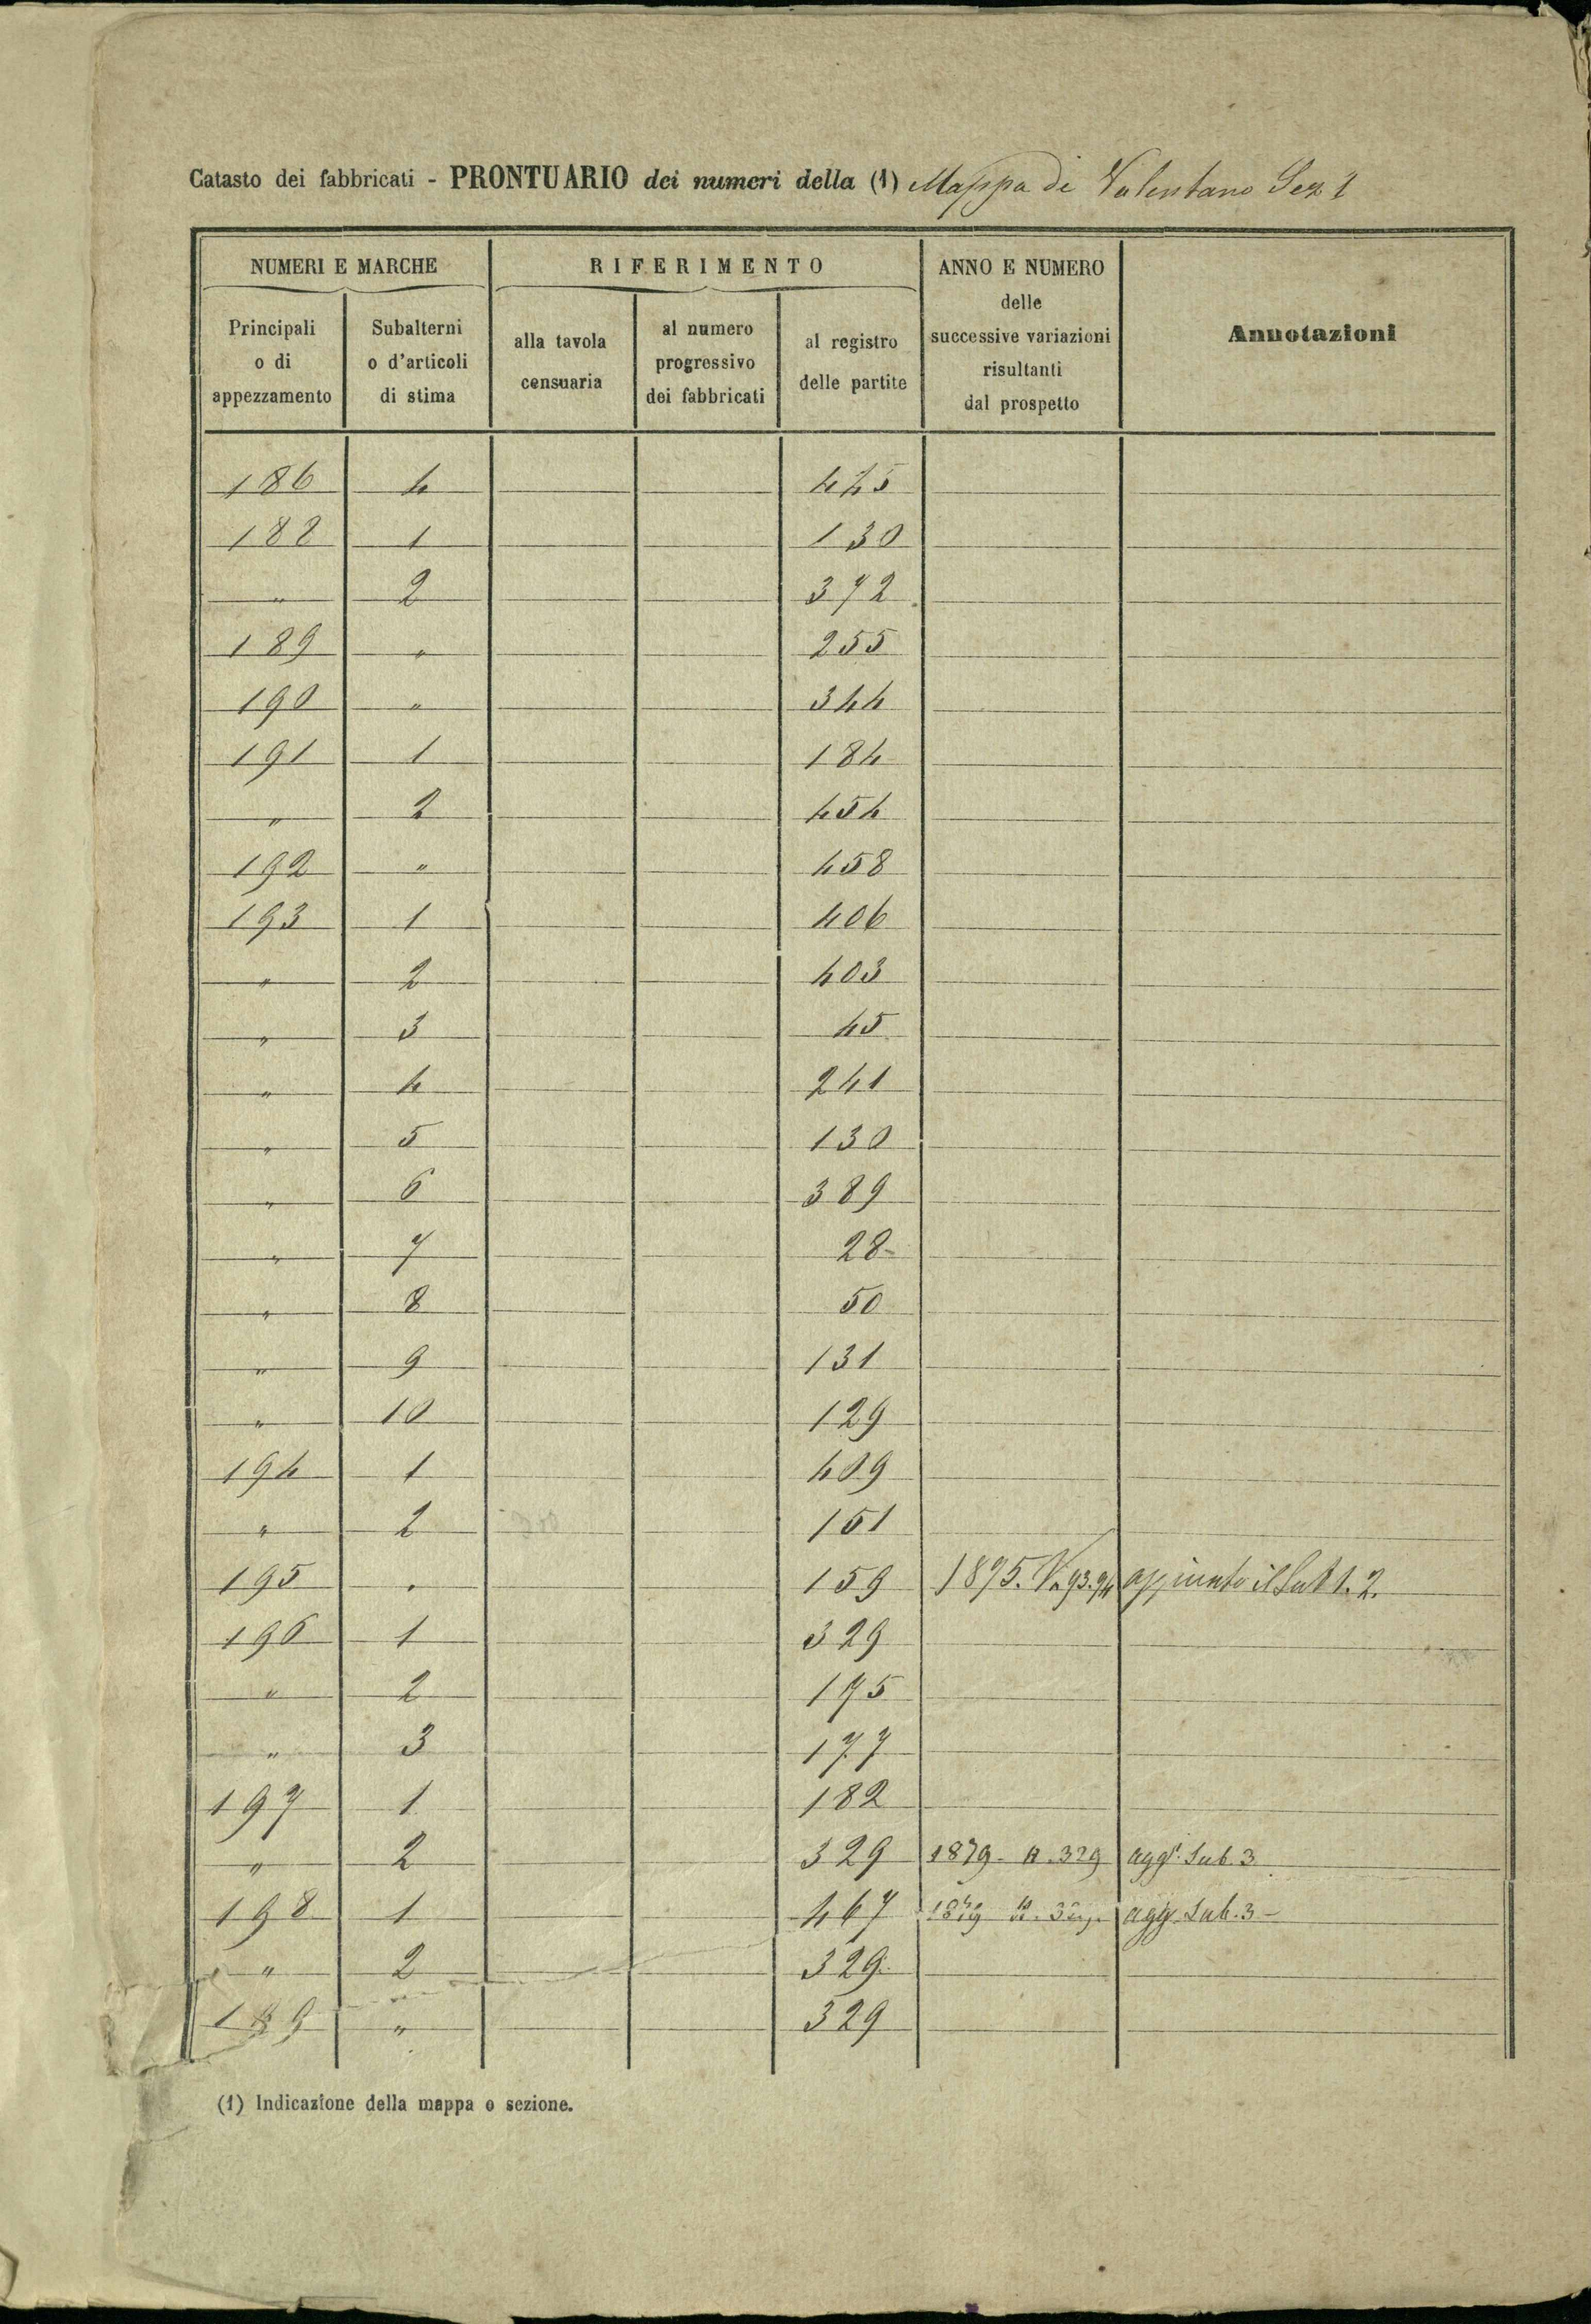 Catasto dei fabbricati - PRONTUARIO dei numeri della (1) Mappa di Valentano Sez 1
NUMERI E MARCHE
RIFERIMENTO
ANNO E NUMERO
delle
successive variazioni
risultanti
dal prospetto
Annotazioni
Principali
o di
appezzamento
Subalterni
o d'articoli
di stima
alla tavola
censuaria
al numero
progressivo
dei fabbricati
al registro
delle partite
186 4
188 1 130
" 2 372
189 " 255
190 " 344
191 1 184
" 2 454
192 " 458
193 1 406
" 2 403
" 3 45
" 4 241
" 5 130
" 6 389
" 7 28
" 8 50
" 9 131
" 10 129
194 1 409
" 2 151
195 " 159 1875. V. 93.94 aggiunto il Sub 1. 2.
196 1 329
" 2 175
" 3 177
197 1 182
" 2 329 1879 - A. 329 agg. Sub. 3
198 1 467 1879 agg. Sub. 3 -
" 2 329
199 " 329
(1) Indicazione della mappa o sezione.